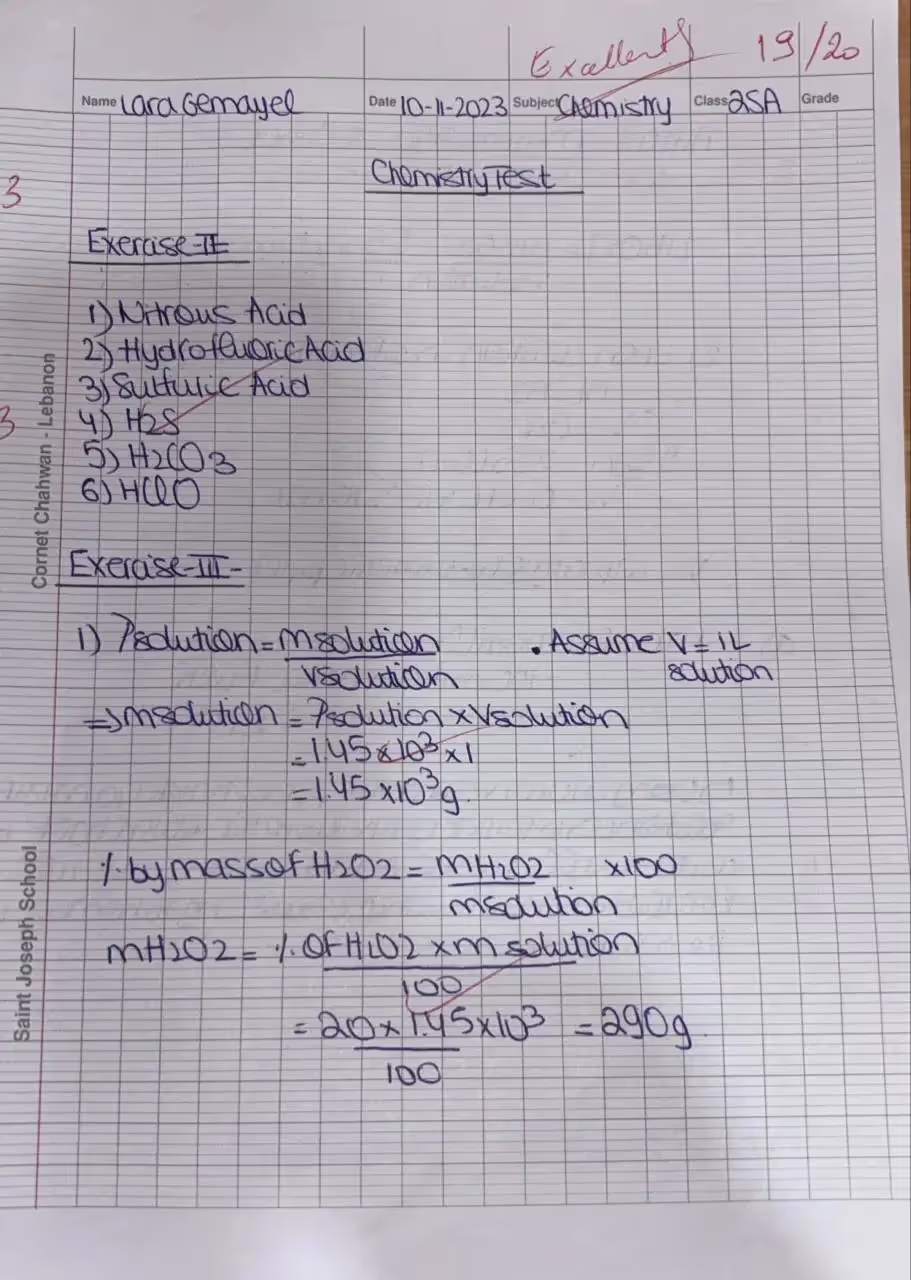 Excellent 19/20
Name Lara Gemayel Date 10-11-2023 Subject Chemistry Class 2SA Grade
Chemistry Test
3
Exercise-II
1) Nitrous Acid
2) Hydrofluoric Acid
3) Sulfuric Acid
4) H2S
3
5) H2CO3
6) HClO
Cornet Chahwan - Lebanon
Exercise-III-
1) ρsolution = msolution . Assume V = 1L
vsolution solution
=> msolution = ρsolution x Vsolution
= 1.45 x 10³ x 1
= 1.45 x 10³g.
% by mass of H2O2 = mH2O2 x100
msolution
mH2O2 = % of H2O2 x m solution
100
= 20 x 1.45 x 10³ = 290g.
100
Saint Joseph School